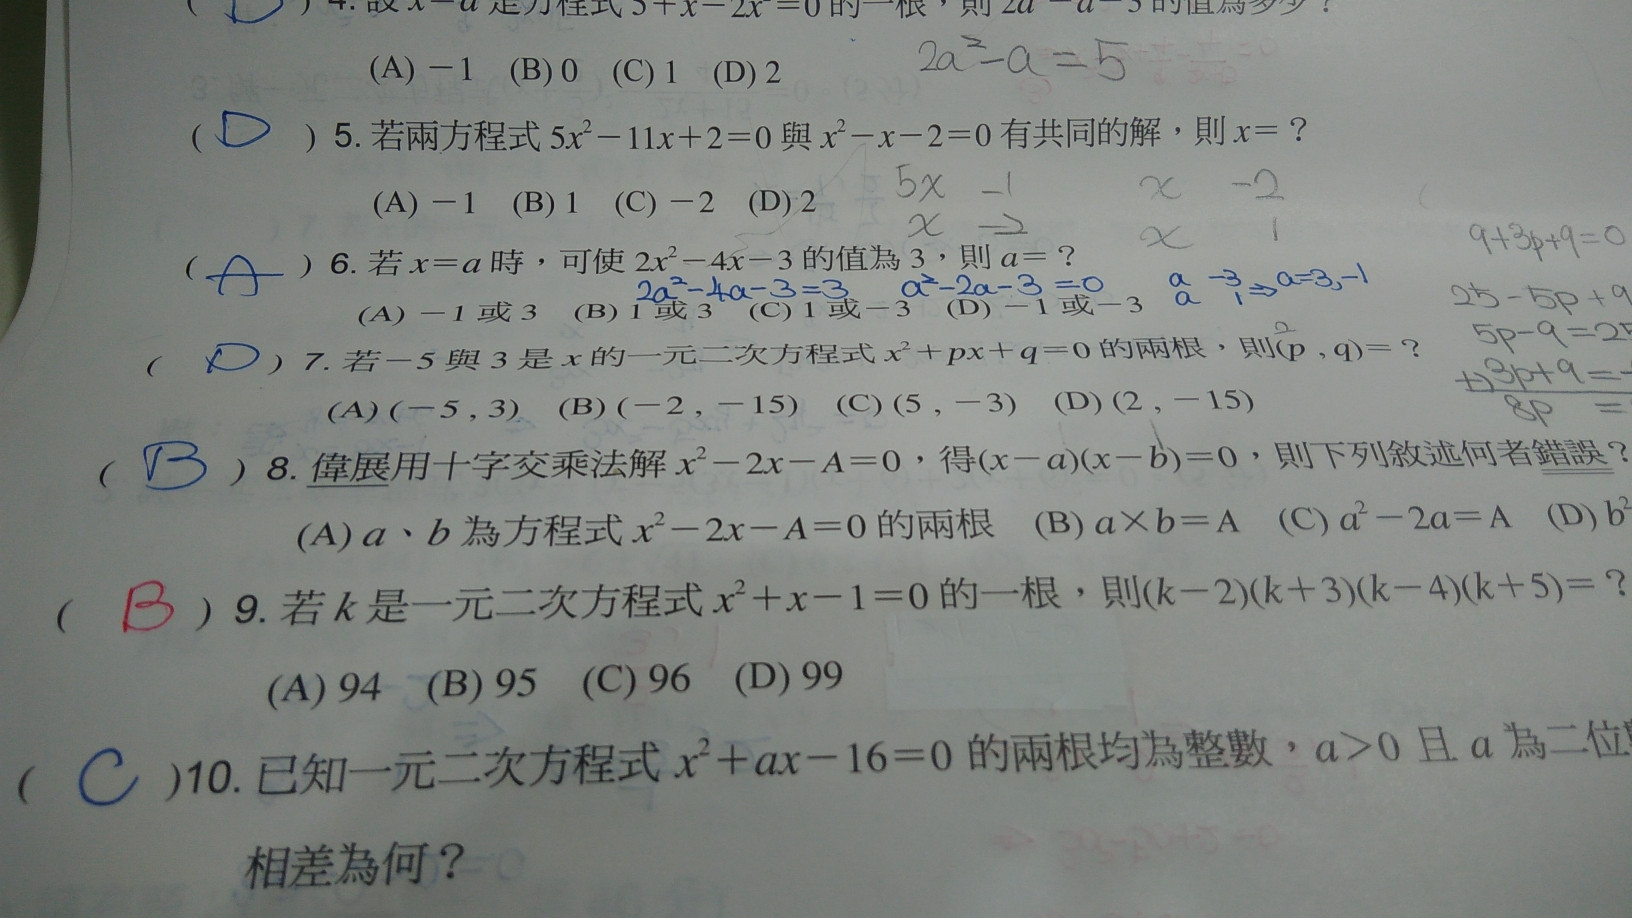 ( D ) 4. 設 x=a 是方程式 5+x-2x²=0 的一根,則 2a²-a-3 的值為多少?
(A) -1 (B) 0 (C) 1 (D) 2 2a²-a=5
( D ) 5. 若兩方程式 5x²-11x+2=0 與 x²-x-2=0 有共同的解,則 x=?
5x -1 x -2
(A) -1 (B) 1 (C) -2 (D) 2
x -2 x 1
9+3p+q=0
( A ) 6. 若 x=a 時,可使 2x²-4x-3 的值為 3,則 a=?
2a²-4a-3=3 a²-2a-3=0 a -3 ⇒ a=3,-1
a 1
25-5p+q
(A) -1 或 3 (B) 1 或 3 (C) 1 或 -3 (D) -1 或 -3
5p-q=25
( D ) 7. 若 -5 與 3 是 x 的一元二次方程式 x²+px+q=0 的兩根,則(p , q)=?
2
+)3p+q=-
8p =
(A) (-5 , 3) (B) (-2 , -15) (C) (5 , -3) (D) (2 , -15)
( B ) 8. 偉展用十字交乘法解 x²-2x-A=0,得(x-a)(x-b)=0,則下列敘述何者錯誤?
(A) a、b 為方程式 x²-2x-A=0 的兩根 (B) a×b=A (C) a²-2a=A (D) b²
( B ) 9. 若 k 是一元二次方程式 x²+x-1=0 的一根,則(k-2)(k+3)(k-4)(k+5)=?
(A) 94 (B) 95 (C) 96 (D) 99
( C )10. 已知一元二次方程式 x²+ax-16=0 的兩根均為整數,a>0 且 a 為二位
相差為何?